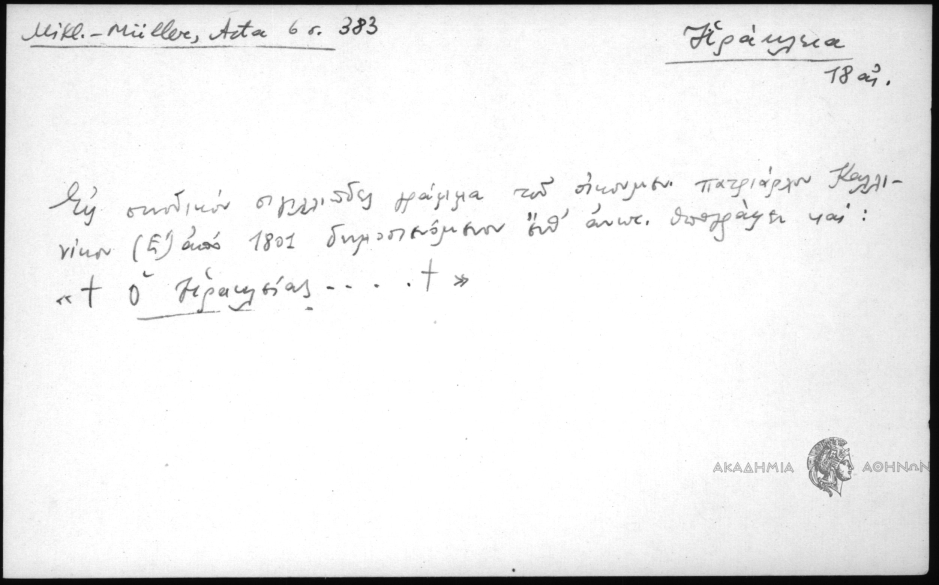 Mikl.-Müller, Acta 6 σ. 383
Ἡράκλεια
18 αἰ.
Εἰς συνοδικὸν σιγιλλιῶδες γράμμα τοῦ οἰκουμεν. πατριάρχου Καλλι-
νίκου (Ε') ἀπὸ 1801 δημοσιευόμενον ἔνθ' ἀνωτ. ὑπογράφει καὶ:
«† ὁ Ἡρακλείας - - . . . † »
ΑΚΑΔΗΜΙΑ ΑΘΗΝΩΝ